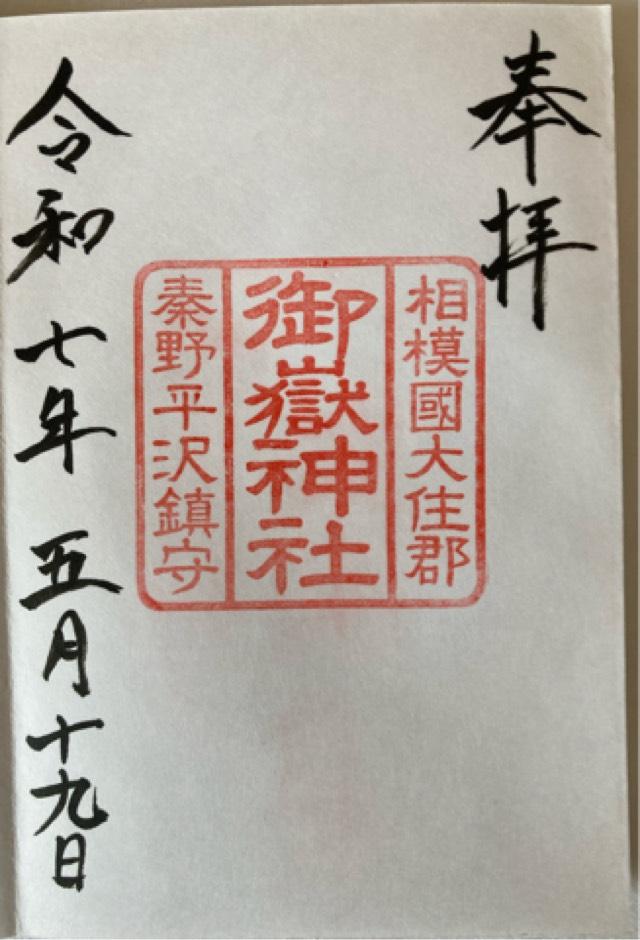 奉拝
相模國大住郡
御嶽神社
秦野平沢鎮守
令和七年五月十九日